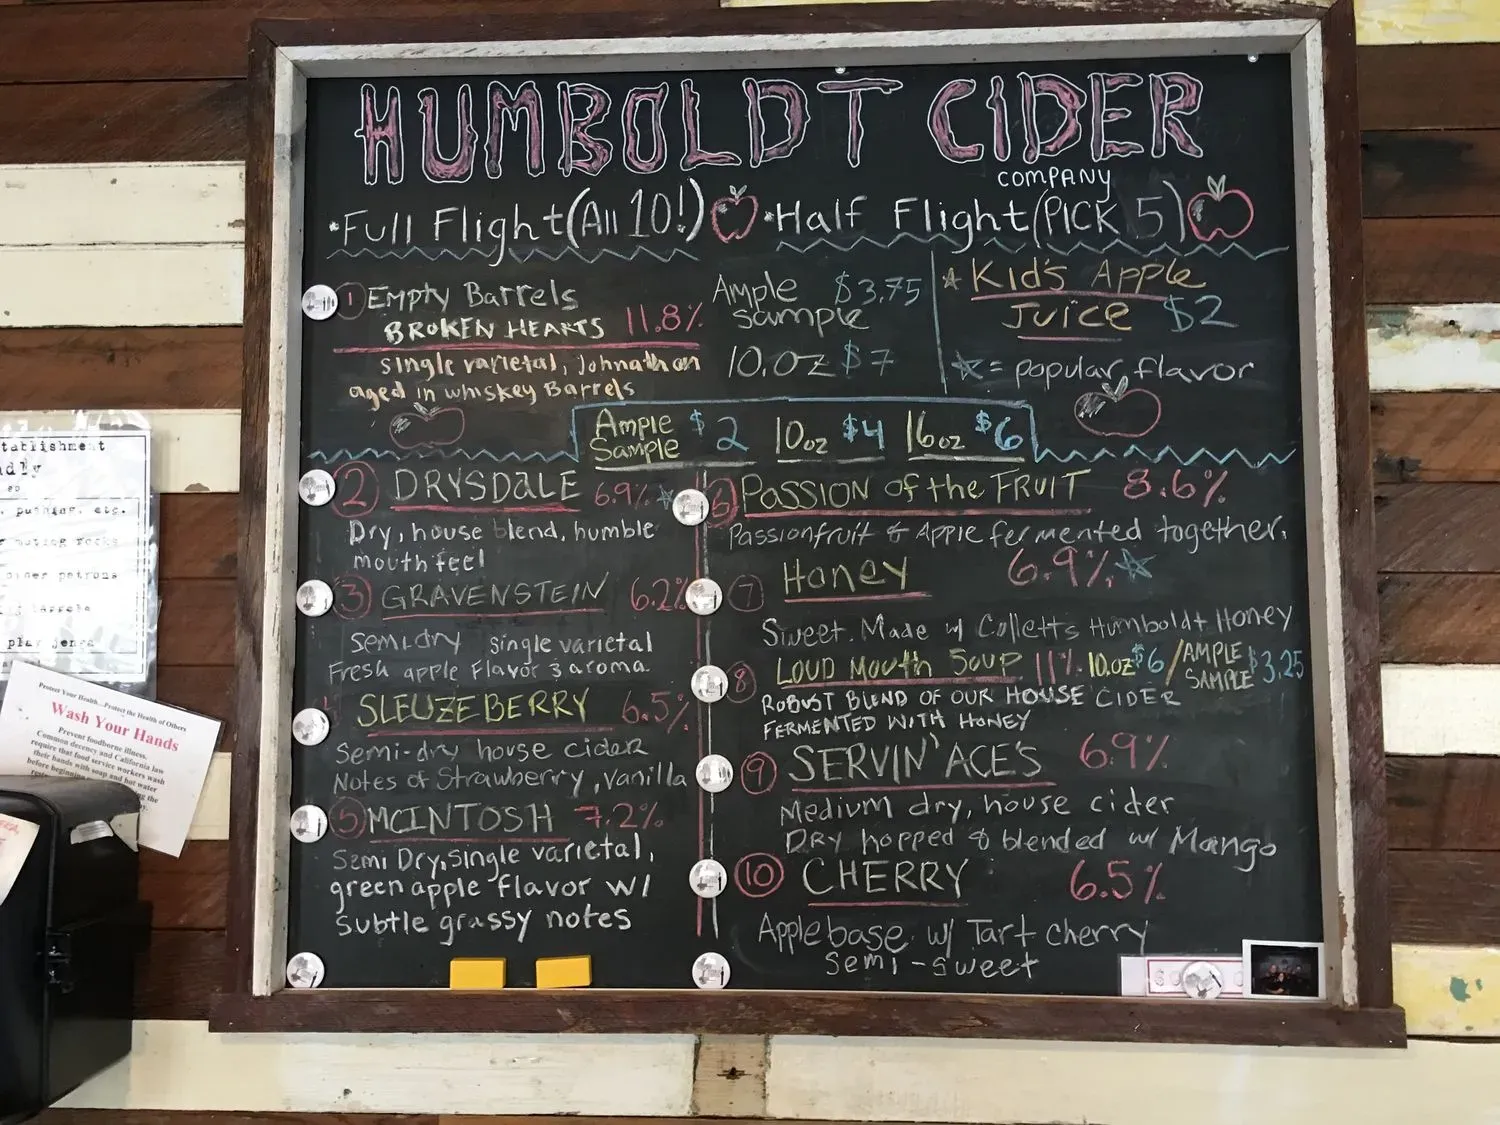 HUMBOLDT CIDER
COMPANY
•Full Flight (All 10!) •Half Flight (PICK 5)
1 Empty Barrels
BROKEN HEARTS 11.8%
single varietal, Johnathan
aged in whiskey Barrels
Ample $3.75
sample
10.oz $7
Kid's Apple
Juice $2
= popular flavor
Ample $2 10oz $4 16oz $6
Sample
2 DRYSDALE 6.9%
Dry, house blend, humble
mouth feel
3 GRAVENSTEIN 6.2%
semi-dry single varietal
Fresh apple flavor & aroma.
4 SLEUZEBERRY 6.5%
Semi-dry house cider
Notes of Strawberry, vanilla
5 MCINTOSH 7.2%
Semi Dry, single varietal,
green apple flavor w/
subtle grassy notes
6 PASSION of the FRUIT 8.6%
Passionfruit & Apple fermented together.
7 Honey 6.9%
Sweet. Made w/ Colletts Humboldt Honey
8 LOUD MOUTH SOUP 11%. 10.oz $6 / AMPLE SAMPLE $3.25
ROBUST BLEND OF OUR HOUSE CIDER
FERMENTED WITH HONEY
9 SERVIN' ACE'S 6.9%
Medium dry, house cider
DRY hopped & blended w/ Mango
10 CHERRY 6.5%
Apple base w/ Tart cherry
semi-sweet
tablishment
dly
, pushing, etc.
play jenga
Protect Your Health...Protect the Health of Others
Wash Your Hands
Prevent foodborne illness.
Common decency and California law
require that food service workers wash
their hands with soap and hot water
before beginning